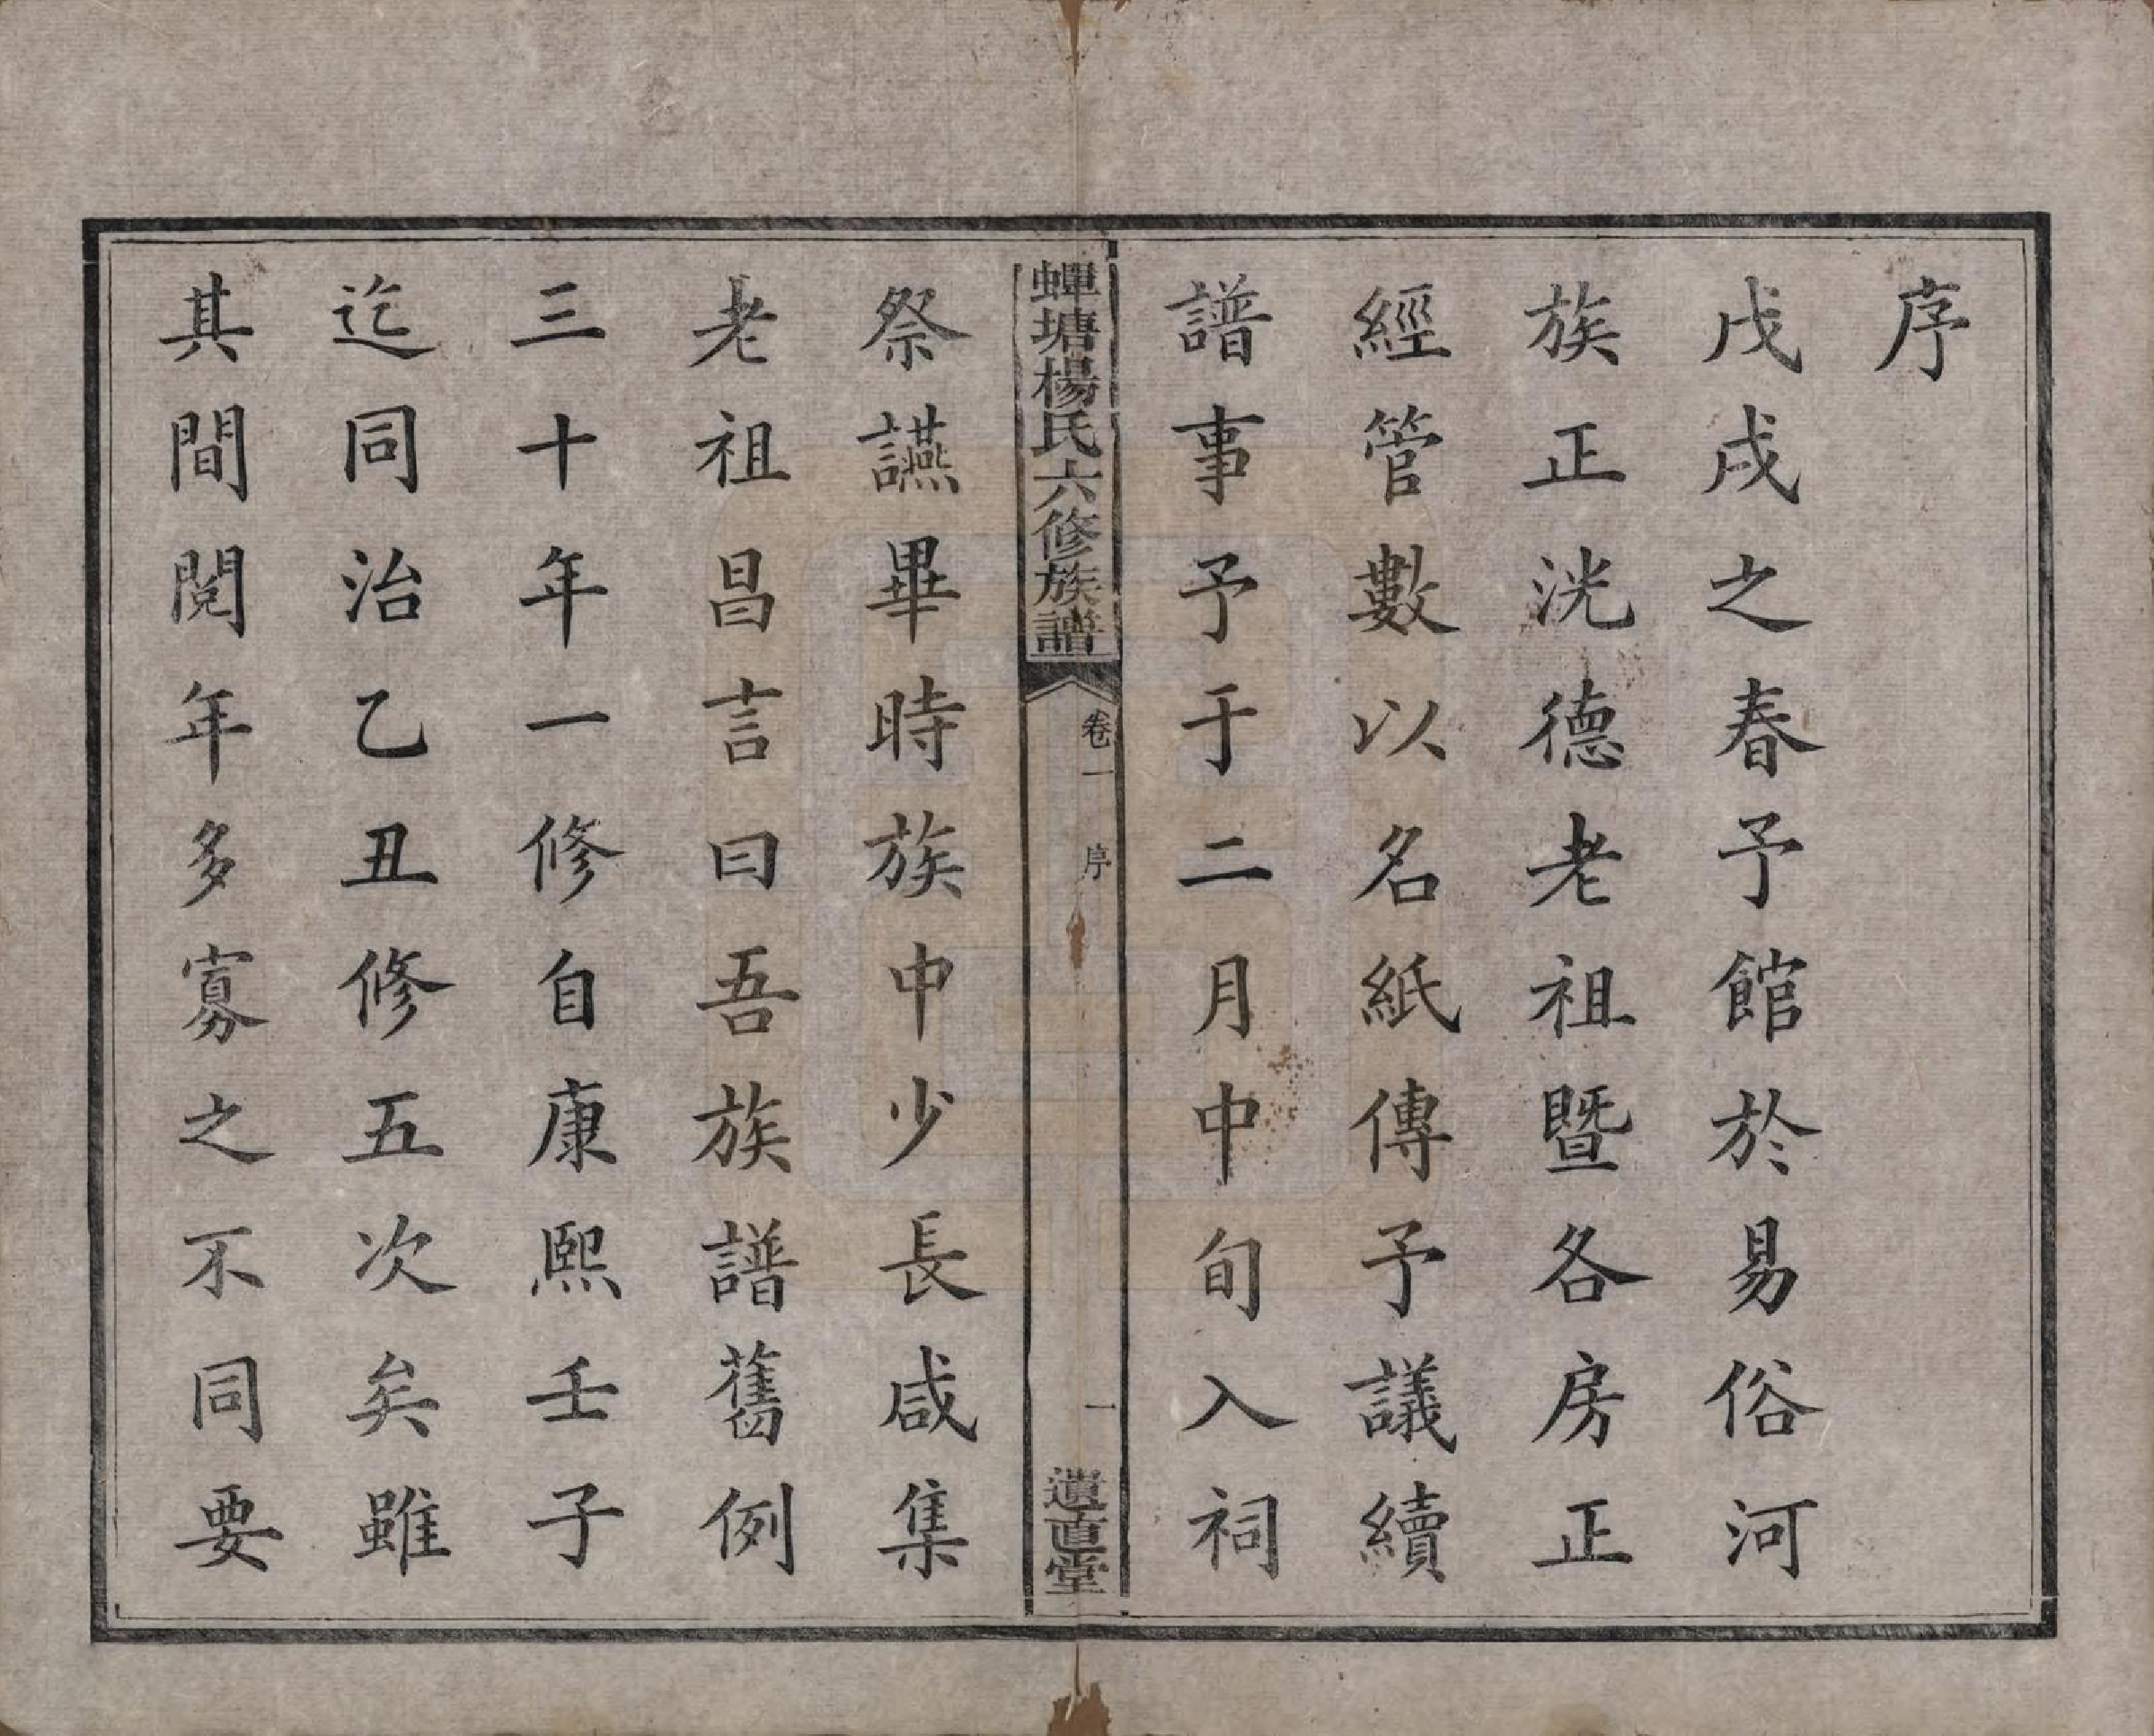 序
戊戌之春予館於易俗河
族正洸德老祖暨各房正
經管數以名紙傳予議續
譜事予于二月中旬入祠
蟬塘楊氏六修族譜
卷一
序
一
遺直堂
祭讌畢時族中少長咸集
老祖昌言曰吾族譜舊例
三十年一修自康熙壬子
迄同治乙丑修五次矣雖
其間閱年多寡之不同要